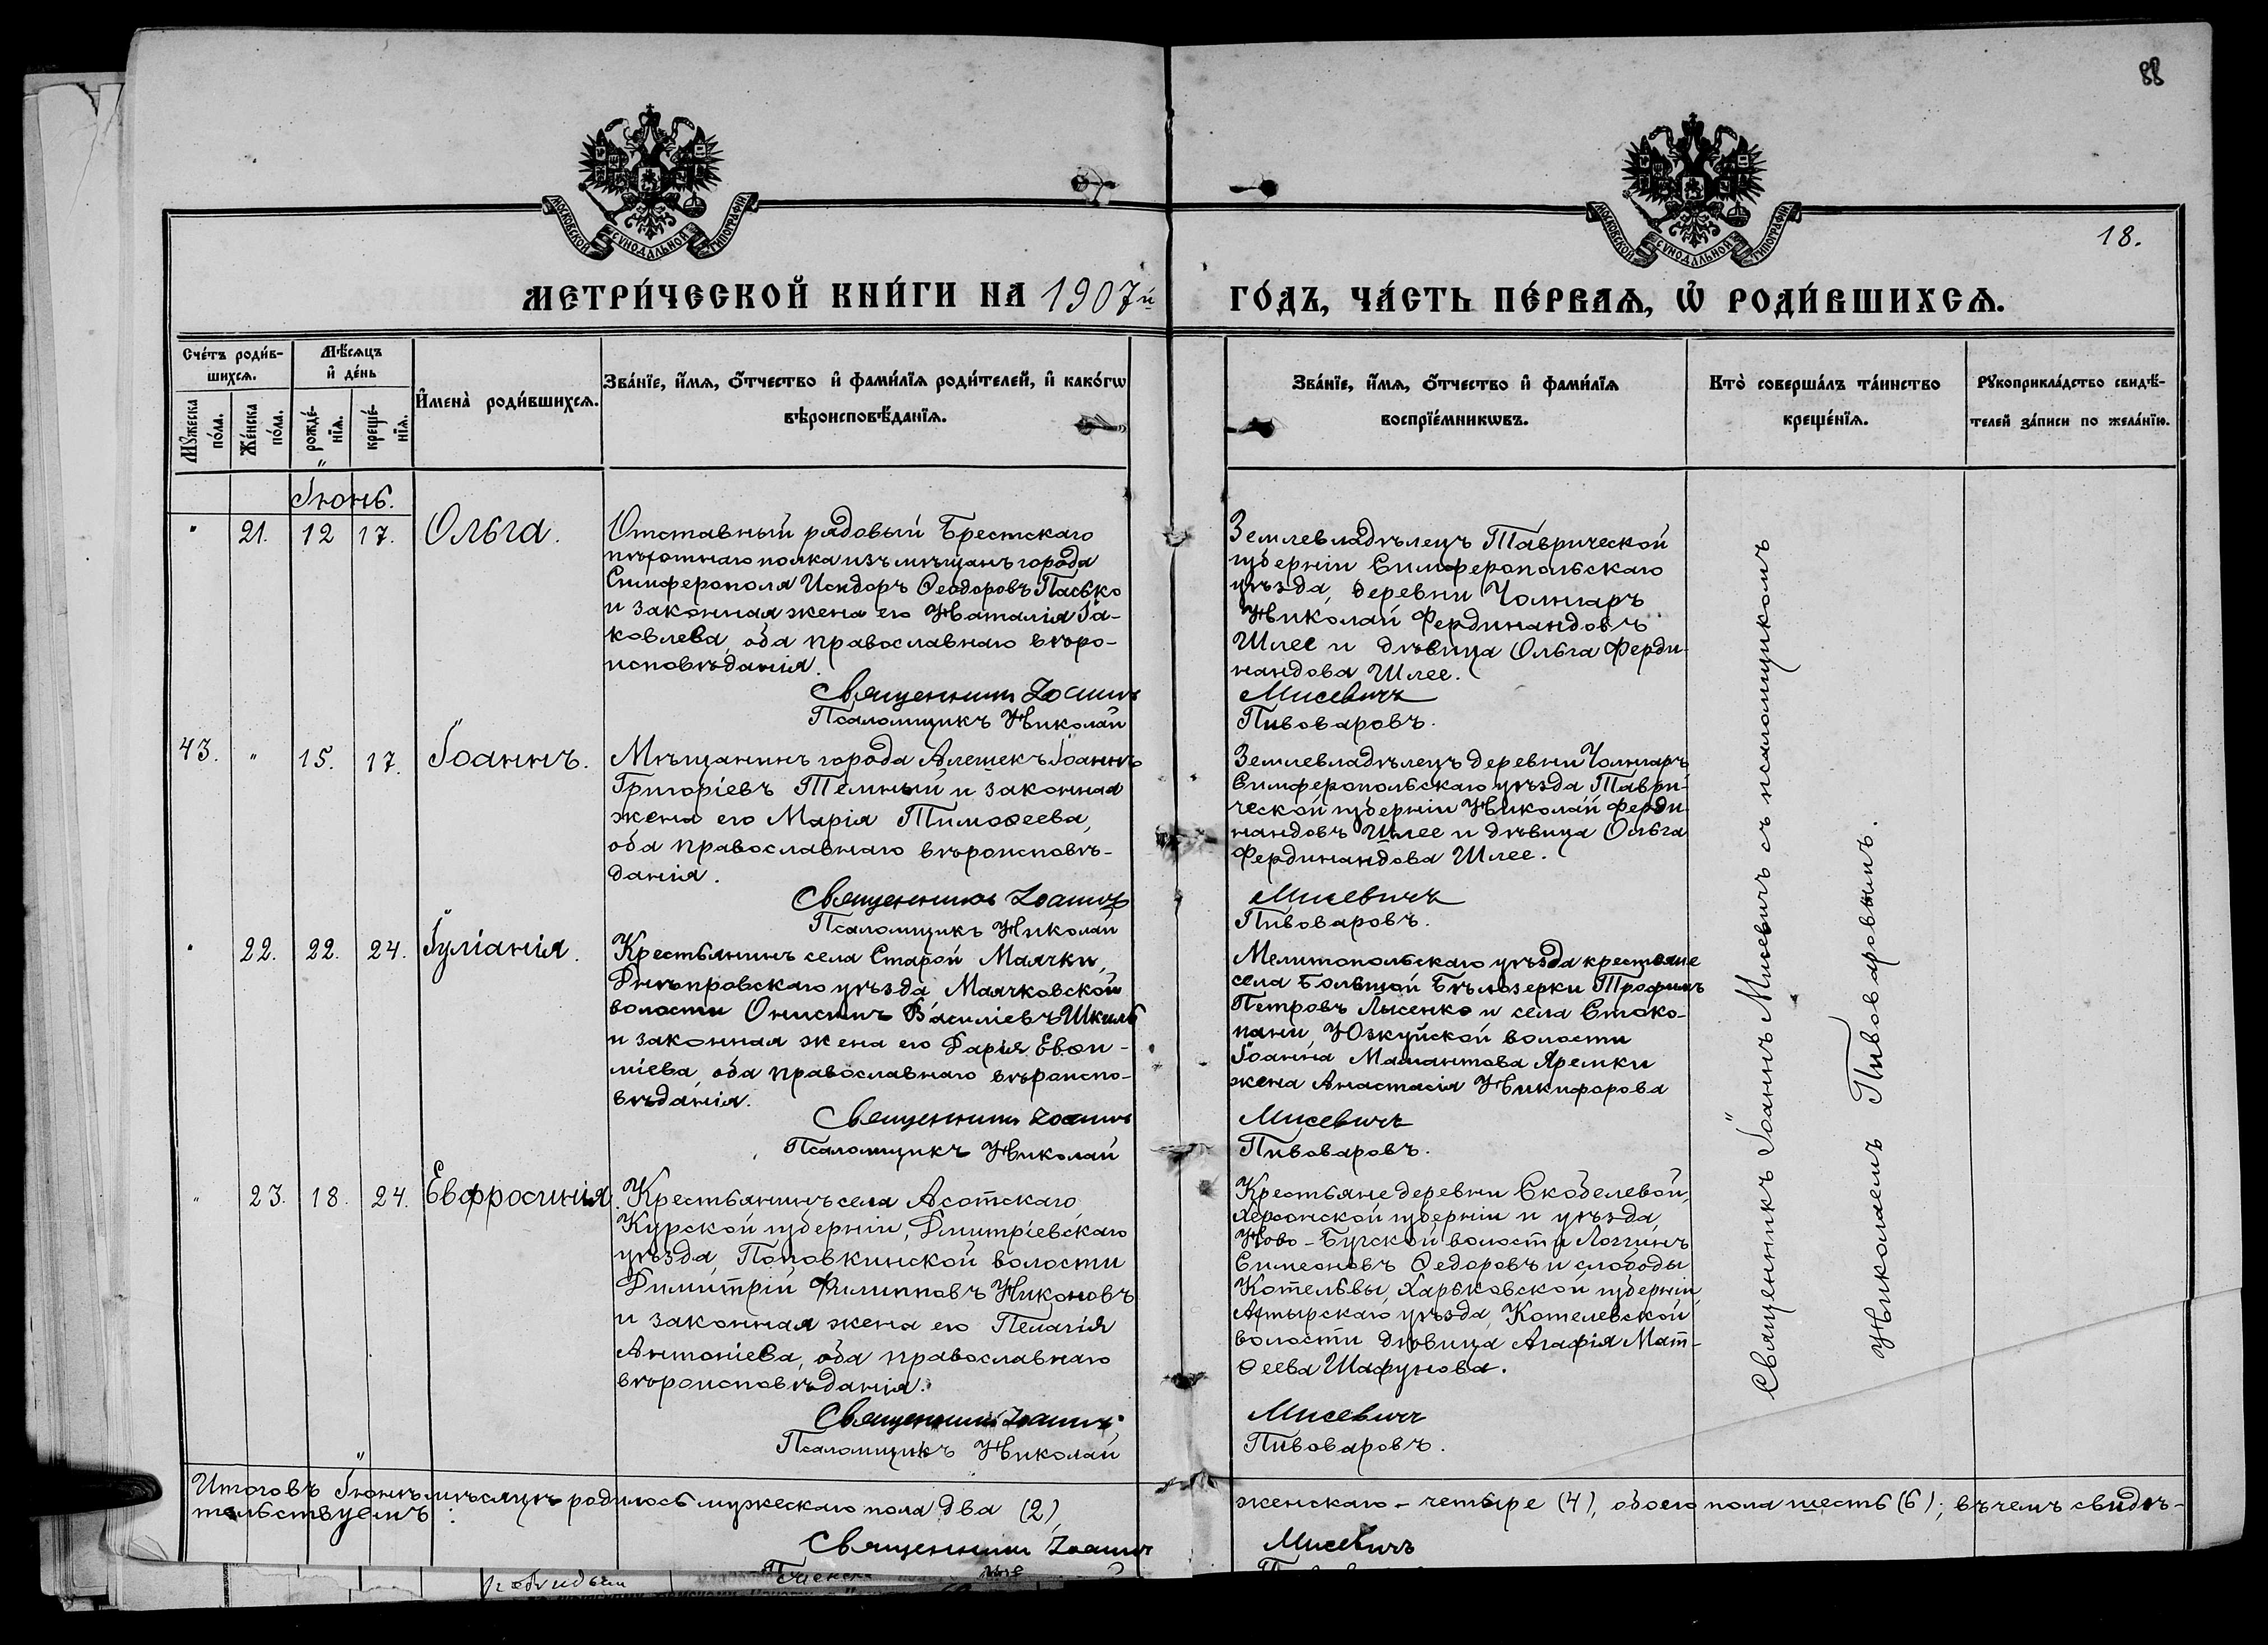 88
МОСКОВСКОЙ СѴНОДАЛЬНОЙ ТИПОГРАФІИ
МОСКОВСКОЙ СѴНОДАЛЬНОЙ ТИПОГРАФІИ
18.
МЕТРИ́ЧЕСКОЙ КНИ́ГИ НА 1907й ГО́ДЪ, ЧА́СТЬ ПЕ́РВАѦ, Ѡ҆ РОДИ́ВШИХСѦ.
Сче́тъ роди́в-
шихсѧ.
Мꙋ́жеска
по́ла.
Же́нска
по́ла.
Мѣ́сѧцъ
и҆ де́нь
рожде́-
нїѧ.
креще́-
нїѧ.
И҆мена̀ роди́вшихсѧ.
Зва́нїе, и҆́мѧ, ѻ҆́тчество и҆ фами́лїѧ роди́телей, и҆ како́гѡ
вѣроисповѣ́данїѧ.
Зва́нїе, и҆́мѧ, ѻ҆́тчество и҆ фами́лїѧ
воспрїе́мникѡвъ.
Кто̀ соверша́лъ та́инство
креще́нїѧ.
Рꙋкоприкла́дство свидѣ́-
телей за́писи по жела́нїю.
Іюнь.
" 21. 12 17. Ольга.
Отставный рядовый Брестскаго
пѣхотнаго полка изъ мѣщанъ города
Симферополя Исидоръ Ѳеодоровъ Пасько
и законная жена его Наталія Іа-
ковлева, оба православнаго вѣро-
исповѣданія.
Священникъ Іоаннъ
Псаломщикъ Николай
Землевладѣлецъ Таврической
губерніи Симферопольскаго
уѣзда, деревни Чолнгаръ
Николай Фердинандовъ
Шлее и дѣвица Ольга Ферди-
нандова Шлее.
Мисевичъ
Пивоваровъ.
43. " 15. 17. Іоаннъ.
Мѣщанинъ города Алешекъ Іоаннъ
Григоріевъ Темный и законная
жена его Марія Тимоѳеева,
оба православнаго вѣроисповѣ-
данія.
Священникъ Іоаннъ
Псаломщикъ Николай
Землевладѣлецъ деревни Чолнгаръ
Симферопольскаго уѣзда Таври-
ческой губерніи Николай Ферди-
нандовъ Шлее и дѣвица Ольга
Фердинандова Шлее.
Мисевичъ
Пивоваровъ.
" 22. 22. 24. Іуліанія.
Крестьянинъ села Старой Маячки,
Днѣпровскаго уѣзда, Маячковской
волости Онисимъ Василіевъ Шкиль
и законная жена его Дарія Евѳи-
міева, оба православнаго вѣроиспо-
вѣданія.
Священникъ Іоаннъ
Псаломщикъ Николай
Мелитопольскаго уѣзда крестьяне
села Большой Бѣлозерки Трофимъ
Петровъ Лысенко и села Стоко-
пани, Юзкуйской волости
Іоанна Мамантова Яремки
жена Анастасія Никифорова
Мисевичъ
Пивоваровъ.
" 23. 18. 24. Евфросинія.
Крестьянинъ села Асотскаго,
Курской губерніи, Дмитріевскаго
уѣзда, Поповкинской волости
Димитрій Филипповъ Никоновъ
и законная жена его Пелагія
Антоніева, оба православнаго
вѣроисповѣданія.
Священникъ Іоаннъ
Псаломщикъ Николай
Крестьяне деревни Скобелевой,
Херсонской губерніи и уѣзда,
Ново-Бугской волости Логгинъ
Симеоновъ Ѳедоровъ и слободы
Котельвы, Харьковской губерніи,
Ахтырскаго уѣзда, Котелевской
волости дѣвица Агафія Мат-
ѳеева Шафунова.
Мисевичъ
Пивоваровъ.
Священникъ Іоаннъ Мисевичъ съ псаломщикомъ
Николаемъ Пивоваровымъ.
Итого въ Іюнѣ мѣсяцѣ родилось мужескаго пола два (2), женскаго - четыре (4), обоего пола шесть (6); въ чемъ свидѣ-
тельствуемъ:
Священникъ Іоаннъ Мисевичъ